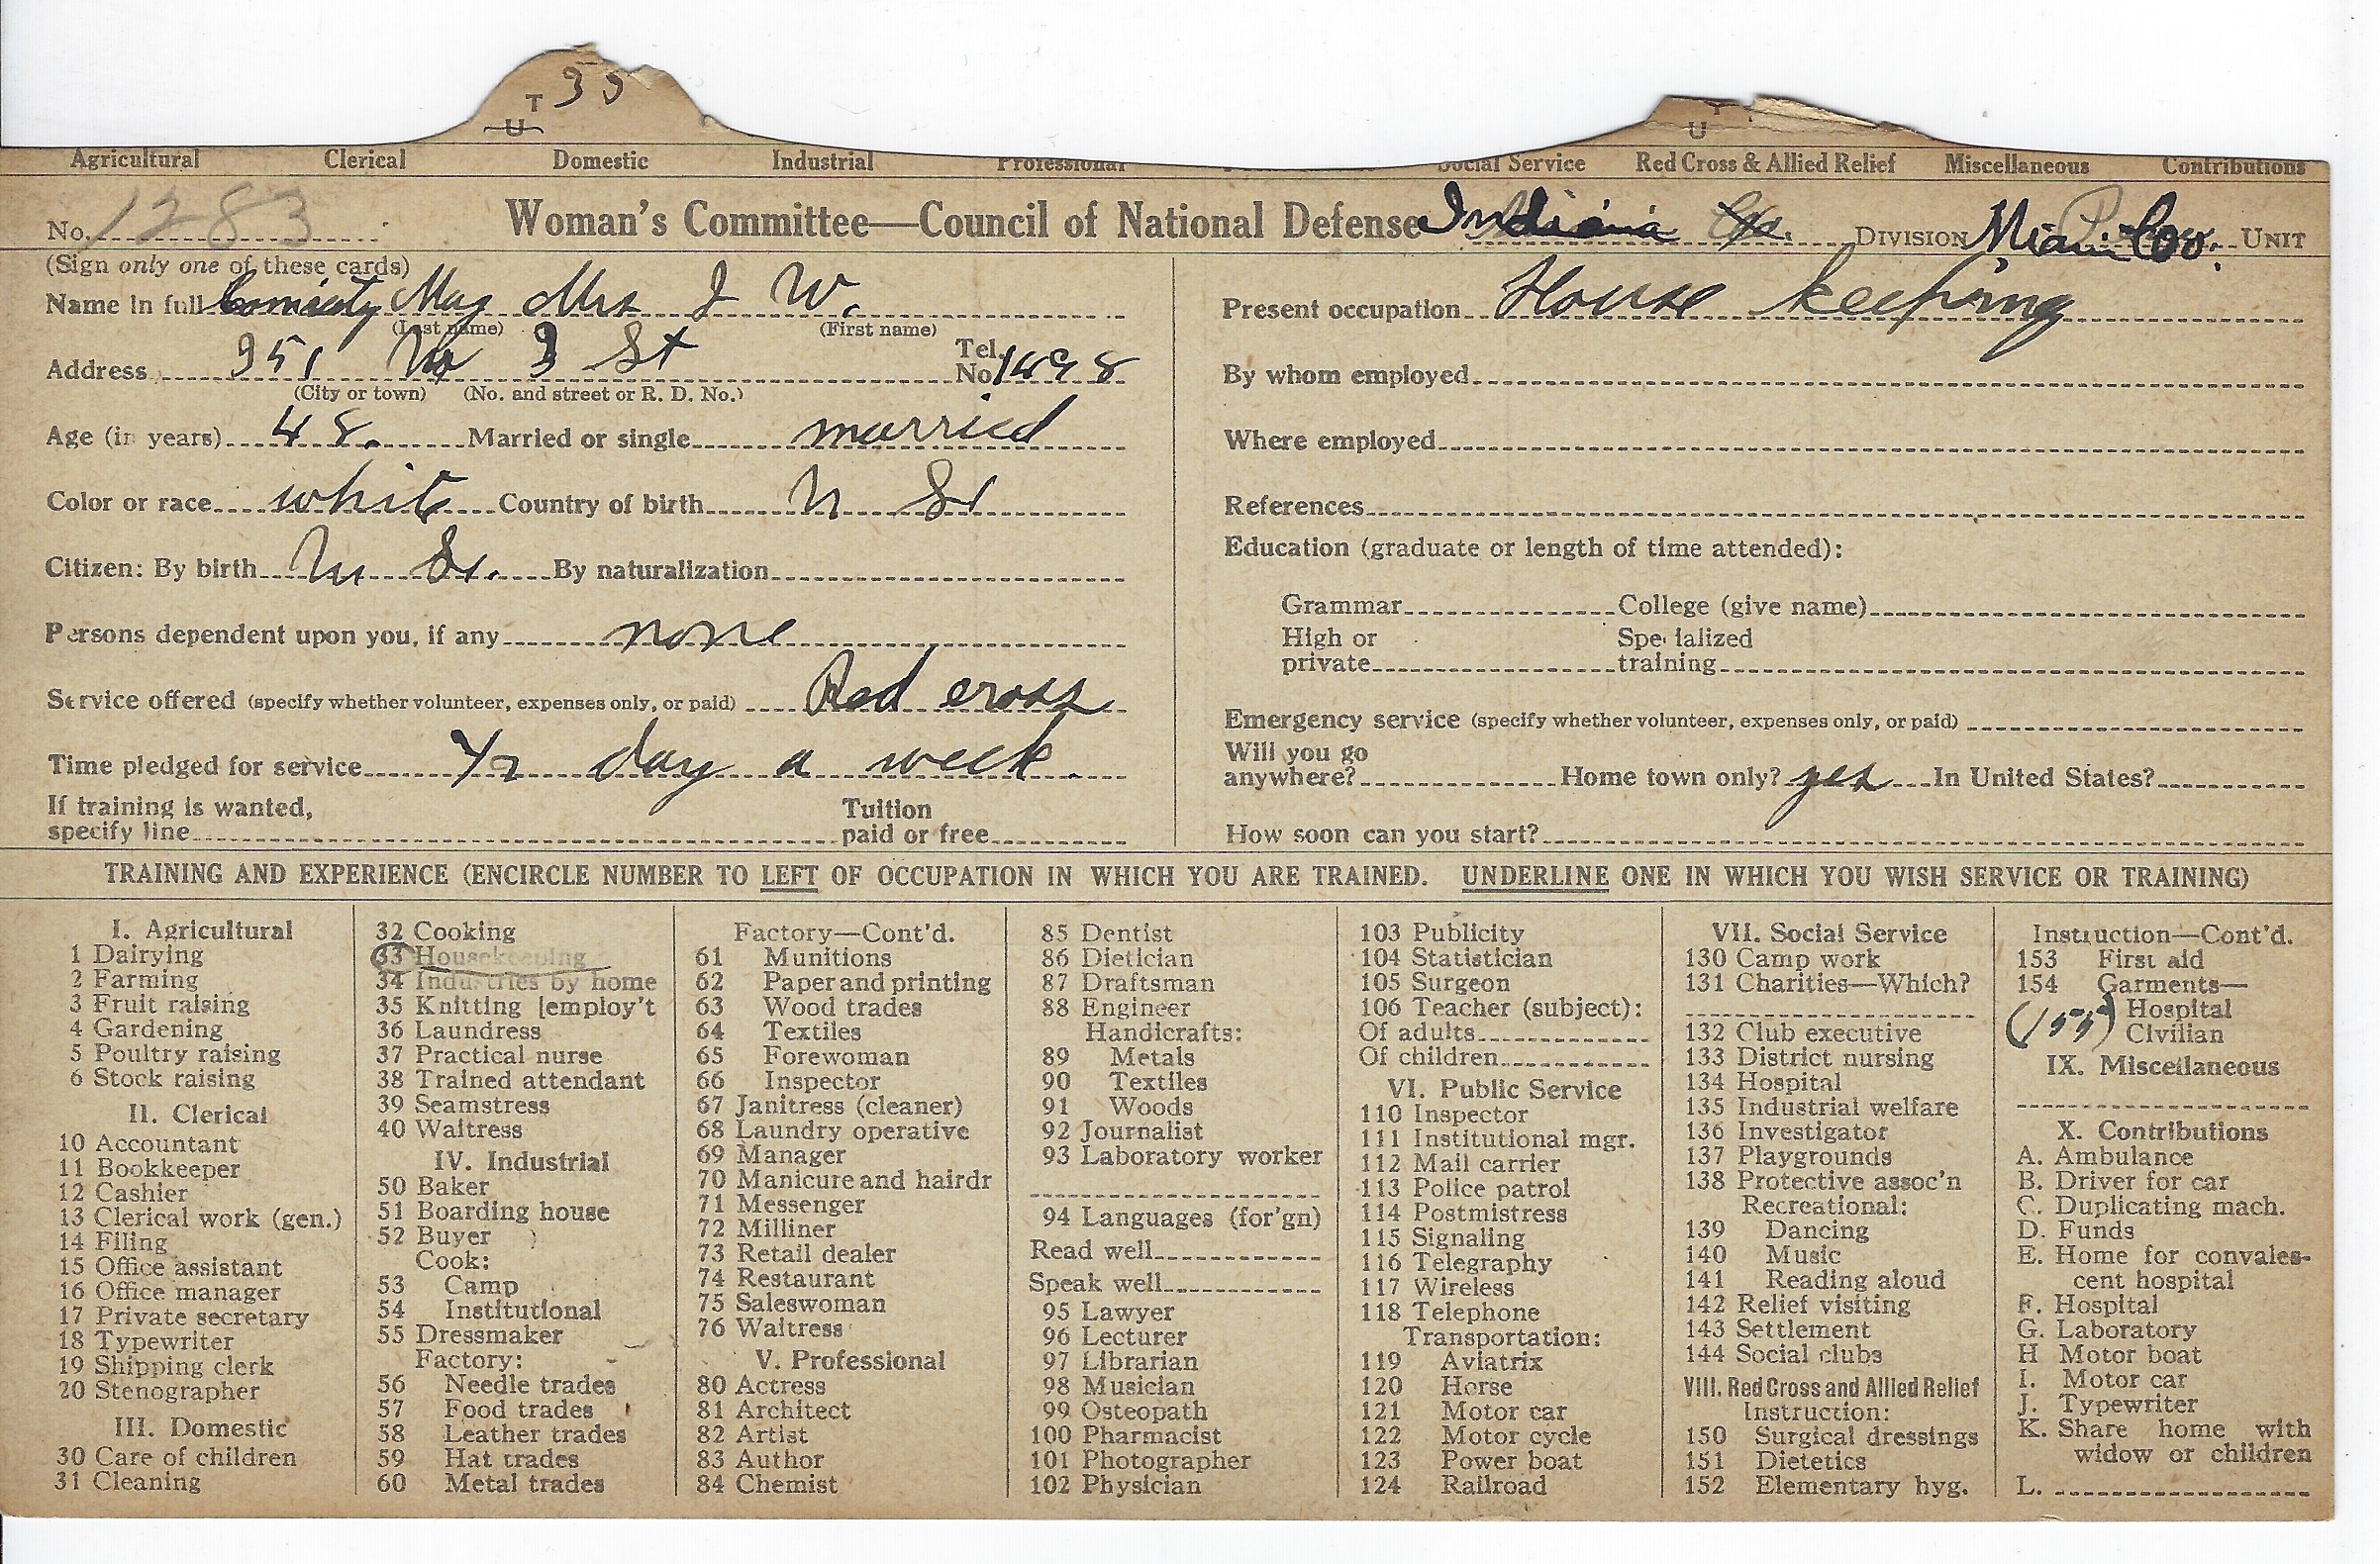 T 33
U
T
U
Agricultural Clerical Domestic Industrial Professional Social Service Red Cross & Allied Relief Miscellaneous Contributions
No. 1283 Woman's Committee—Council of National Defense Indiana DIVISION Miami Co. UNIT
(Sign only one of these cards)
Name in full May Mrs J W.
(Last name) (First name)
Address 351 W 3 St Tel. No. 1498
(City or town) (No. and street or R. D. No.)
Age (in years) 48. Married or single married
Color or race white Country of birth U S
Citizen: By birth U S. By naturalization
Persons dependent upon you, if any none
Service offered (specify whether volunteer, expenses only, or paid) Red cross
Time pledged for service 1/2 day a week.
If training is wanted,
specify line Tuition paid or free
Present occupation House keeping
By whom employed
Where employed
References
Education (graduate or length of time attended):
Grammar College (give name)
High or private Specialized training
Emergency service (specify whether volunteer, expenses only, or paid)
Will you go
anywhere? Home town only? yes In United States?
How soon can you start?
TRAINING AND EXPERIENCE (ENCIRCLE NUMBER TO LEFT OF OCCUPATION IN WHICH YOU ARE TRAINED. UNDERLINE ONE IN WHICH YOU WISH SERVICE OR TRAINING)
I. Agricultural
1 Dairying
2 Farming
3 Fruit raising
4 Gardening
5 Poultry raising
6 Stock raising
II. Clerical
10 Accountant
11 Bookkeeper
12 Cashier
13 Clerical work (gen.)
14 Filing
15 Office assistant
16 Office manager
17 Private secretary
18 Typewriter
19 Shipping clerk
20 Stenographer
III. Domestic
30 Care of children
31 Cleaning
32 Cooking
33 Housekeeping
34 Industries by home
35 Knitting [employ't
36 Laundress
37 Practical nurse
38 Trained attendant
39 Seamstress
40 Waitress
IV. Industrial
50 Baker
51 Boarding house
52 Buyer
Cook:
53 Camp
54 Institutional
55 Dressmaker
Factory:
56 Needle trades
57 Food trades
58 Leather trades
59 Hat trades
60 Metal trades
Factory—Cont'd.
61 Munitions
62 Paper and printing
63 Wood trades
64 Textiles
65 Forewoman
66 Inspector
67 Janitress (cleaner)
68 Laundry operative
69 Manager
70 Manicure and hairdr
71 Messenger
72 Milliner
73 Retail dealer
74 Restaurant
75 Saleswoman
76 Waitress
V. Professional
80 Actress
81 Architect
82 Artist
83 Author
84 Chemist
85 Dentist
86 Dietician
87 Draftsman
88 Engineer
Handicrafts:
89 Metals
90 Textiles
91 Woods
92 Journalist
93 Laboratory worker
94 Languages (for'gn)
Read well
Speak well
95 Lawyer
96 Lecturer
97 Librarian
98 Musician
99 Osteopath
100 Pharmacist
101 Photographer
102 Physician
103 Publicity
104 Statistician
105 Surgeon
106 Teacher (subject):
Of adults
Of children
VI. Public Service
110 Inspector
111 Institutional mgr.
112 Mail carrier
113 Police patrol
114 Postmistress
115 Signaling
116 Telegraphy
117 Wireless
118 Telephone
Transportation:
119 Aviatrix
120 Horse
121 Motor car
122 Motor cycle
123 Power boat
124 Railroad
VII. Social Service
130 Camp work
131 Charities—Which?
132 Club executive
133 District nursing
134 Hospital
135 Industrial welfare
136 Investigator
137 Playgrounds
138 Protective assoc'n
Recreational:
139 Dancing
140 Music
141 Reading aloud
142 Relief visiting
143 Settlement
144 Social clubs
VIII. Red Cross and Allied Relief
Instruction:
150 Surgical dressings
151 Dietetics
152 Elementary hyg.
Instruction—Cont'd.
153 First aid
154 Garments—
Hospital
(155) Civilian
IX. Miscellaneous
X. Contributions
A. Ambulance
B. Driver for car
C. Duplicating mach.
D. Funds
E. Home for convales-
cent hospital
F. Hospital
G. Laboratory
H Motor boat
I. Motor car
J. Typewriter
K. Share home with
widow or children
L.